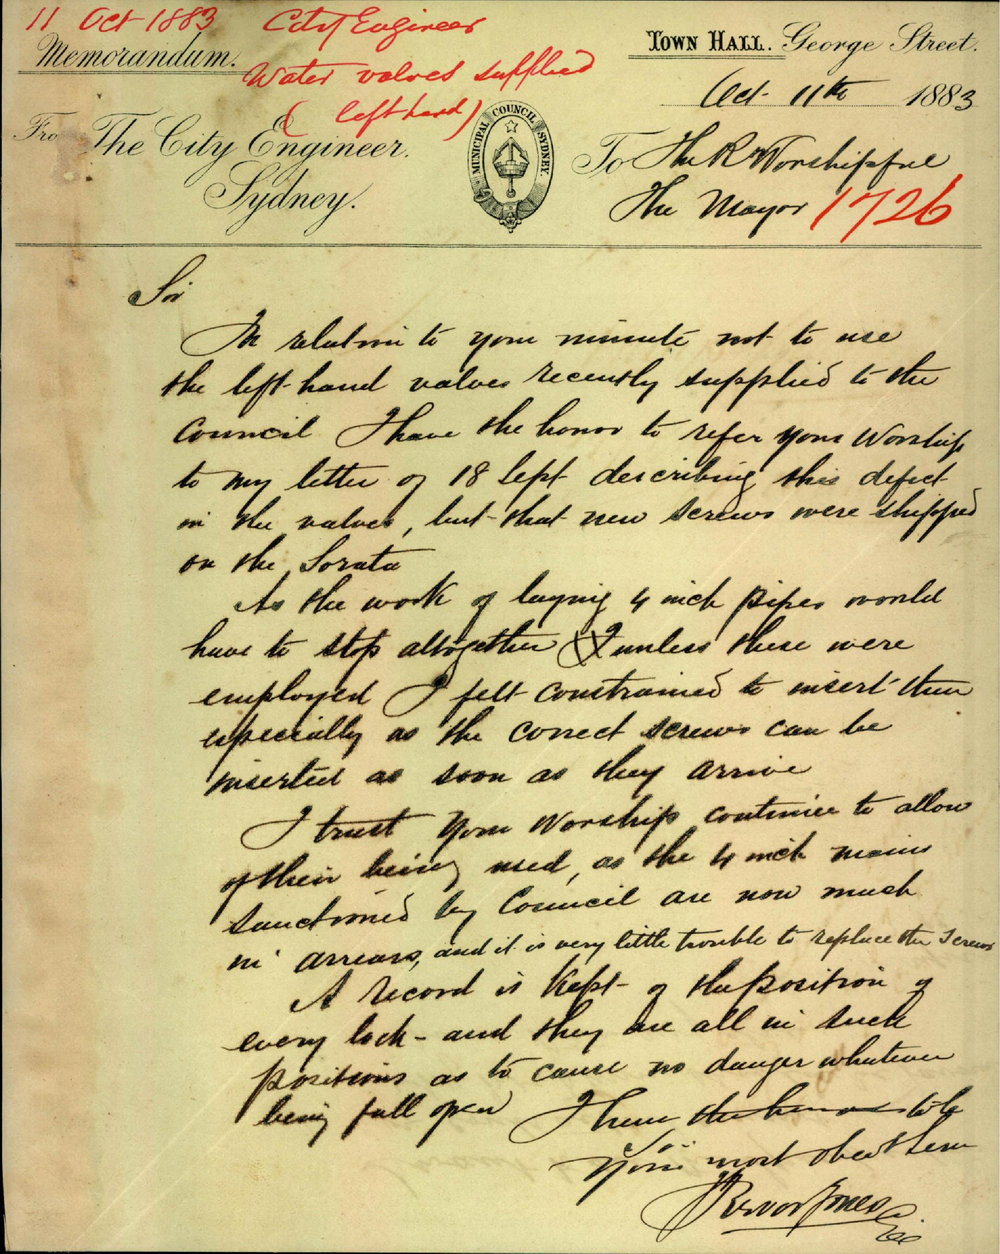 11 Oct 1883 City Engineer
Water valves supplied
(left hand)
Memorandum.
TOWN HALL. George Street.
Oct 11th 1883
From The City Engineer.
Sydney.
MUNICIPAL COUNCIL SYDNEY.
To The Rt Worshipful
The Mayor 1726
Sir
In relation to your minute not to use
the left hand valves recently supplied to the
Council I have the honor to refer your Worship
to my letter of 18 Sept describing this defect
in the valves, but that new screws were shipped
on the Sorata
As the work of laying 4 inch pipes would
have to stop altogether unless these were
employed I felt constrained to insert them
especially as the correct screws can be
inserted as soon as they arrive
I trust your Worship continue to allow
of their being used, as the 4 inch mains
sanctioned by Council are now much
in arrears, and it is very little trouble to replace the screws
A record is kept of the position of
every lock - and they are all in such
positions as to cause no danger whatever
being full open I have the honor to be
Sir
Your most obedt Serv
Trevor Jones
CE